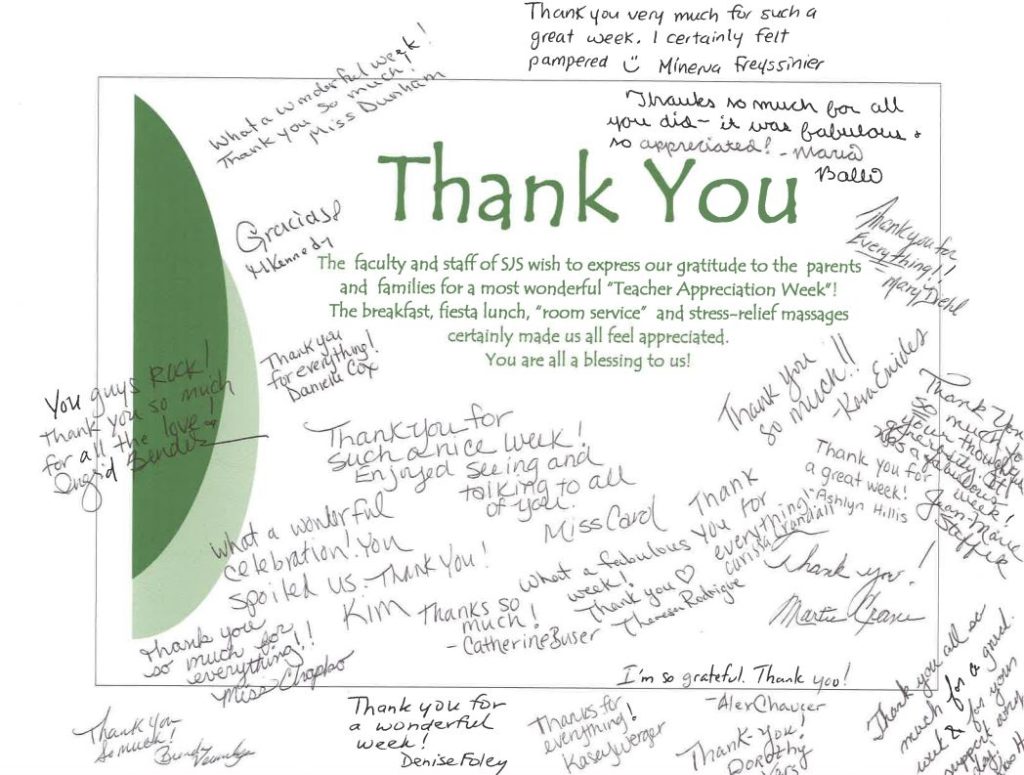 Thank you very much for such a
great week. I certainly felt
pampered Minerva Freyssinier
What a wonderful week!
Thank you so much!
Miss Dunham
Thanks so much for all
you did- it was fabulous +
so appreciated! - Maria
Ballo
Thank You
Gracias!
M Kennedy
Thank you for
Everything!!
- Mary Diehl
The faculty and staff of SJS wish to express our gratitude to the parents
and families for a most wonderful "Teacher Appreciation Week"!
The breakfast, fiesta lunch, "room service" and stress-relief massages
certainly made us all feel appreciated.
You are all a blessing to us!
Thank you
for everything!
Danielle Cox
You guys Rock!
Thank you so much
for all the love!
Ingrid Bender
Thank you
so much!!
- Kara Enides
Thank You
so much for
all your thoughtful
generosity. It
was a fabulous
week!
Jean-Marie
Thank you for
such a nice week!
Enjoyed seeing and
talking to all
of you.
Miss Carol
Thank you for
a great week!
Ashlyn Hillis
Thank
you for
everything!
Carissa Crandall
What a wonderful
celebration! You
spoiled us - Thank you!
Kim
What a fabulous
week!
Thank you ♡
Theresa Rodrigue
Thanks so
much!
- Catherine Buser
Thank you!
Thank you
so much for
everything!!
Miss Chapko
I'm so grateful. Thank you!
- Alex Chaucer
Thank you all so
much for a great
week & for your
support
Thank you
so much!
Thank you for
a wonderful
week!
Denise Foley
Thanks for
everything!
Kasey Werger
Thank-you!
Dorothy